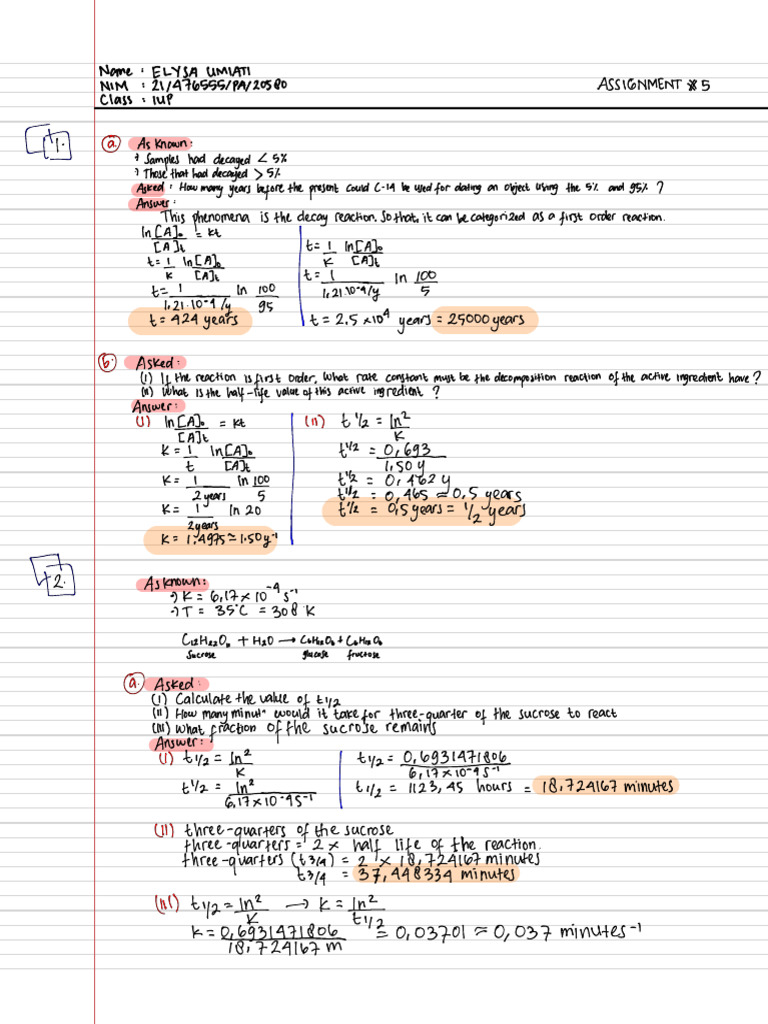 Name : ELYSA UMIATI
NIM : 21/476555/PA/20580
Class : IUP
ASSIGNMENT #5
1.
a. As Known:
• Samples had decayed < 5%
• Those that had decayed > 5%
Asked : How many years before the present could C-14 be used for dating an object using the 5% and 95% ?
Answer :
This phenomena is the decay reaction. So that, it can be categorized as a first order reaction.
ln [A]₀/[A]t = kt
t = 1/k ln [A]₀/[A]t
t = 1/1,21.10⁻⁴/y ln 100/95
t = 424 years
t = 1/k ln [A]₀/[A]t
t = 1/1,21.10⁻⁴/y ln 100/5
t = 2.5 x10⁴ years = 25000 years
b. Asked :
(i) If the reaction is first order, what rate constant must be the decomposition reaction of the active ingredient have ?
(ii) What is the half-life value of this active ingredient ?
Answer :
(i) ln [A]₀/[A]t = kt
k = 1/t ln [A]₀/[A]t
k = 1/2 years ln 100/5
k = 1/2 years ln 20
k = 1,4975 ≃ 1.50 y⁻¹
(ii) t 1/2 = ln 2/k
t 1/2 = 0,693/1,50 y
t 1/2 = 0,462 y
t 1/2 = 0,465 ≃ 0,5 years
t 1/2 = 0,5 years = 1/2 years
2.
As Known :
• K = 6,17 x 10⁻⁴ s⁻¹
• T = 35°C = 308 K
+ H₂O →
Sucrose glucose fructose
a. Asked :
(i) Calculate the value of t 1/2
(ii) How many minut. would it take for three-quarter of the sucrose to react
(iii) What fraction of the sucrose remains
Answer :
(i) t 1/2 = ln 2/k
t 1/2 = ln 2/6,17 x 10⁻⁴ s⁻¹
t 1/2 = 0,6931471806/6,17 x 10⁻⁴ s⁻¹
t 1/2 = 1123,45 hours = 18,724167 minutes
(ii) three-quarters of the sucrose
three-quarters = 2 x half life of the reaction.
three-quarters (t 3/4) = 2 x 18,724167 minutes
t 3/4 = 37,448334 minutes
(iii) t 1/2 = ln 2/k → k = ln 2/t 1/2
k = 0,6931471806/18,724167 m = 0,03701 ≈ 0,037 minutes⁻¹